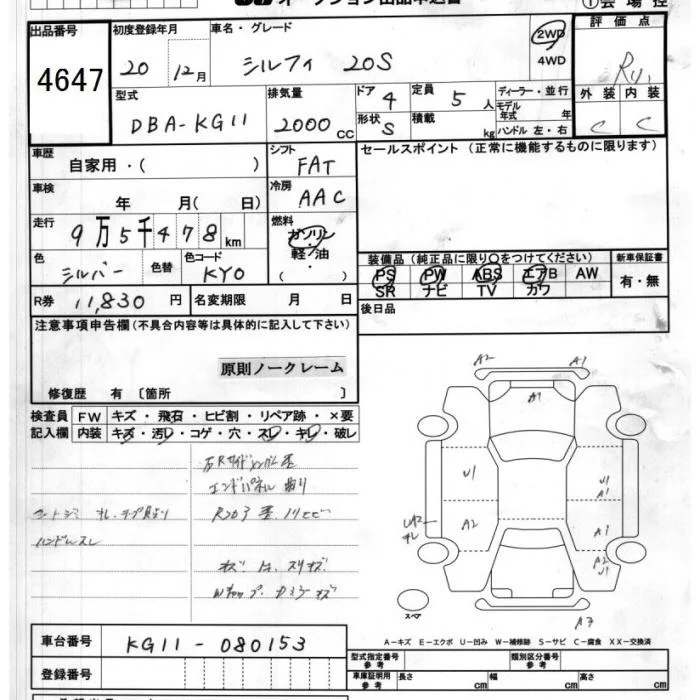 オークション出品申込書
①会場控
出品番号 初度登録年月 車名・グレード 評価点
4647 20 12月 シルフィ 20S 2WD 4WD
外装 内装
C C
型式 排気量 ドア 4 定員 5人 ディーラー・並行
DBA-KG11 2000cc 形状 S 積載 kg モデル年式 年
ハンドル 左・右
車歴 シフト セールスポイント (正常に機能するものに限ります)
自家用・( ) FAT
車検 冷房
年 月( 日) AAC
走行 燃料
9万5千478km ガソリン
軽油
( )
色 色替 色コード
シルバー KYO
装備品 (純正品に限り○をつけてください) 新車保証書
PS PW ABS エアB AW 有・無
SR ナビ TV カワ
R券 11,830円 名変期限 月 日 後日品
注意事項申告欄(不具合内容等は具体的に記入して下さい)
原則ノークレーム
修復歴 有 〔箇所 〕
検査員 FW キズ・飛石・ヒビ割・リペア跡・×要
記入欄 内装 キズ・汚レ・コゲ・穴・スレ・キレ・破レ
エンドパネル
ハンドルスレ
A2 A1
A1
U1 U1
A1
A2 A1
A2
U1
スペア
A3
A-キズ E-エクボ U-凹み W-補修跡 S-サビ C-腐食 XX-交換済
車台番号 KG11-080153
型式指定番号 参考 類別区分番号 参考
登録番号 車庫証明用 参考 長さ cm 幅 cm 高さ cm